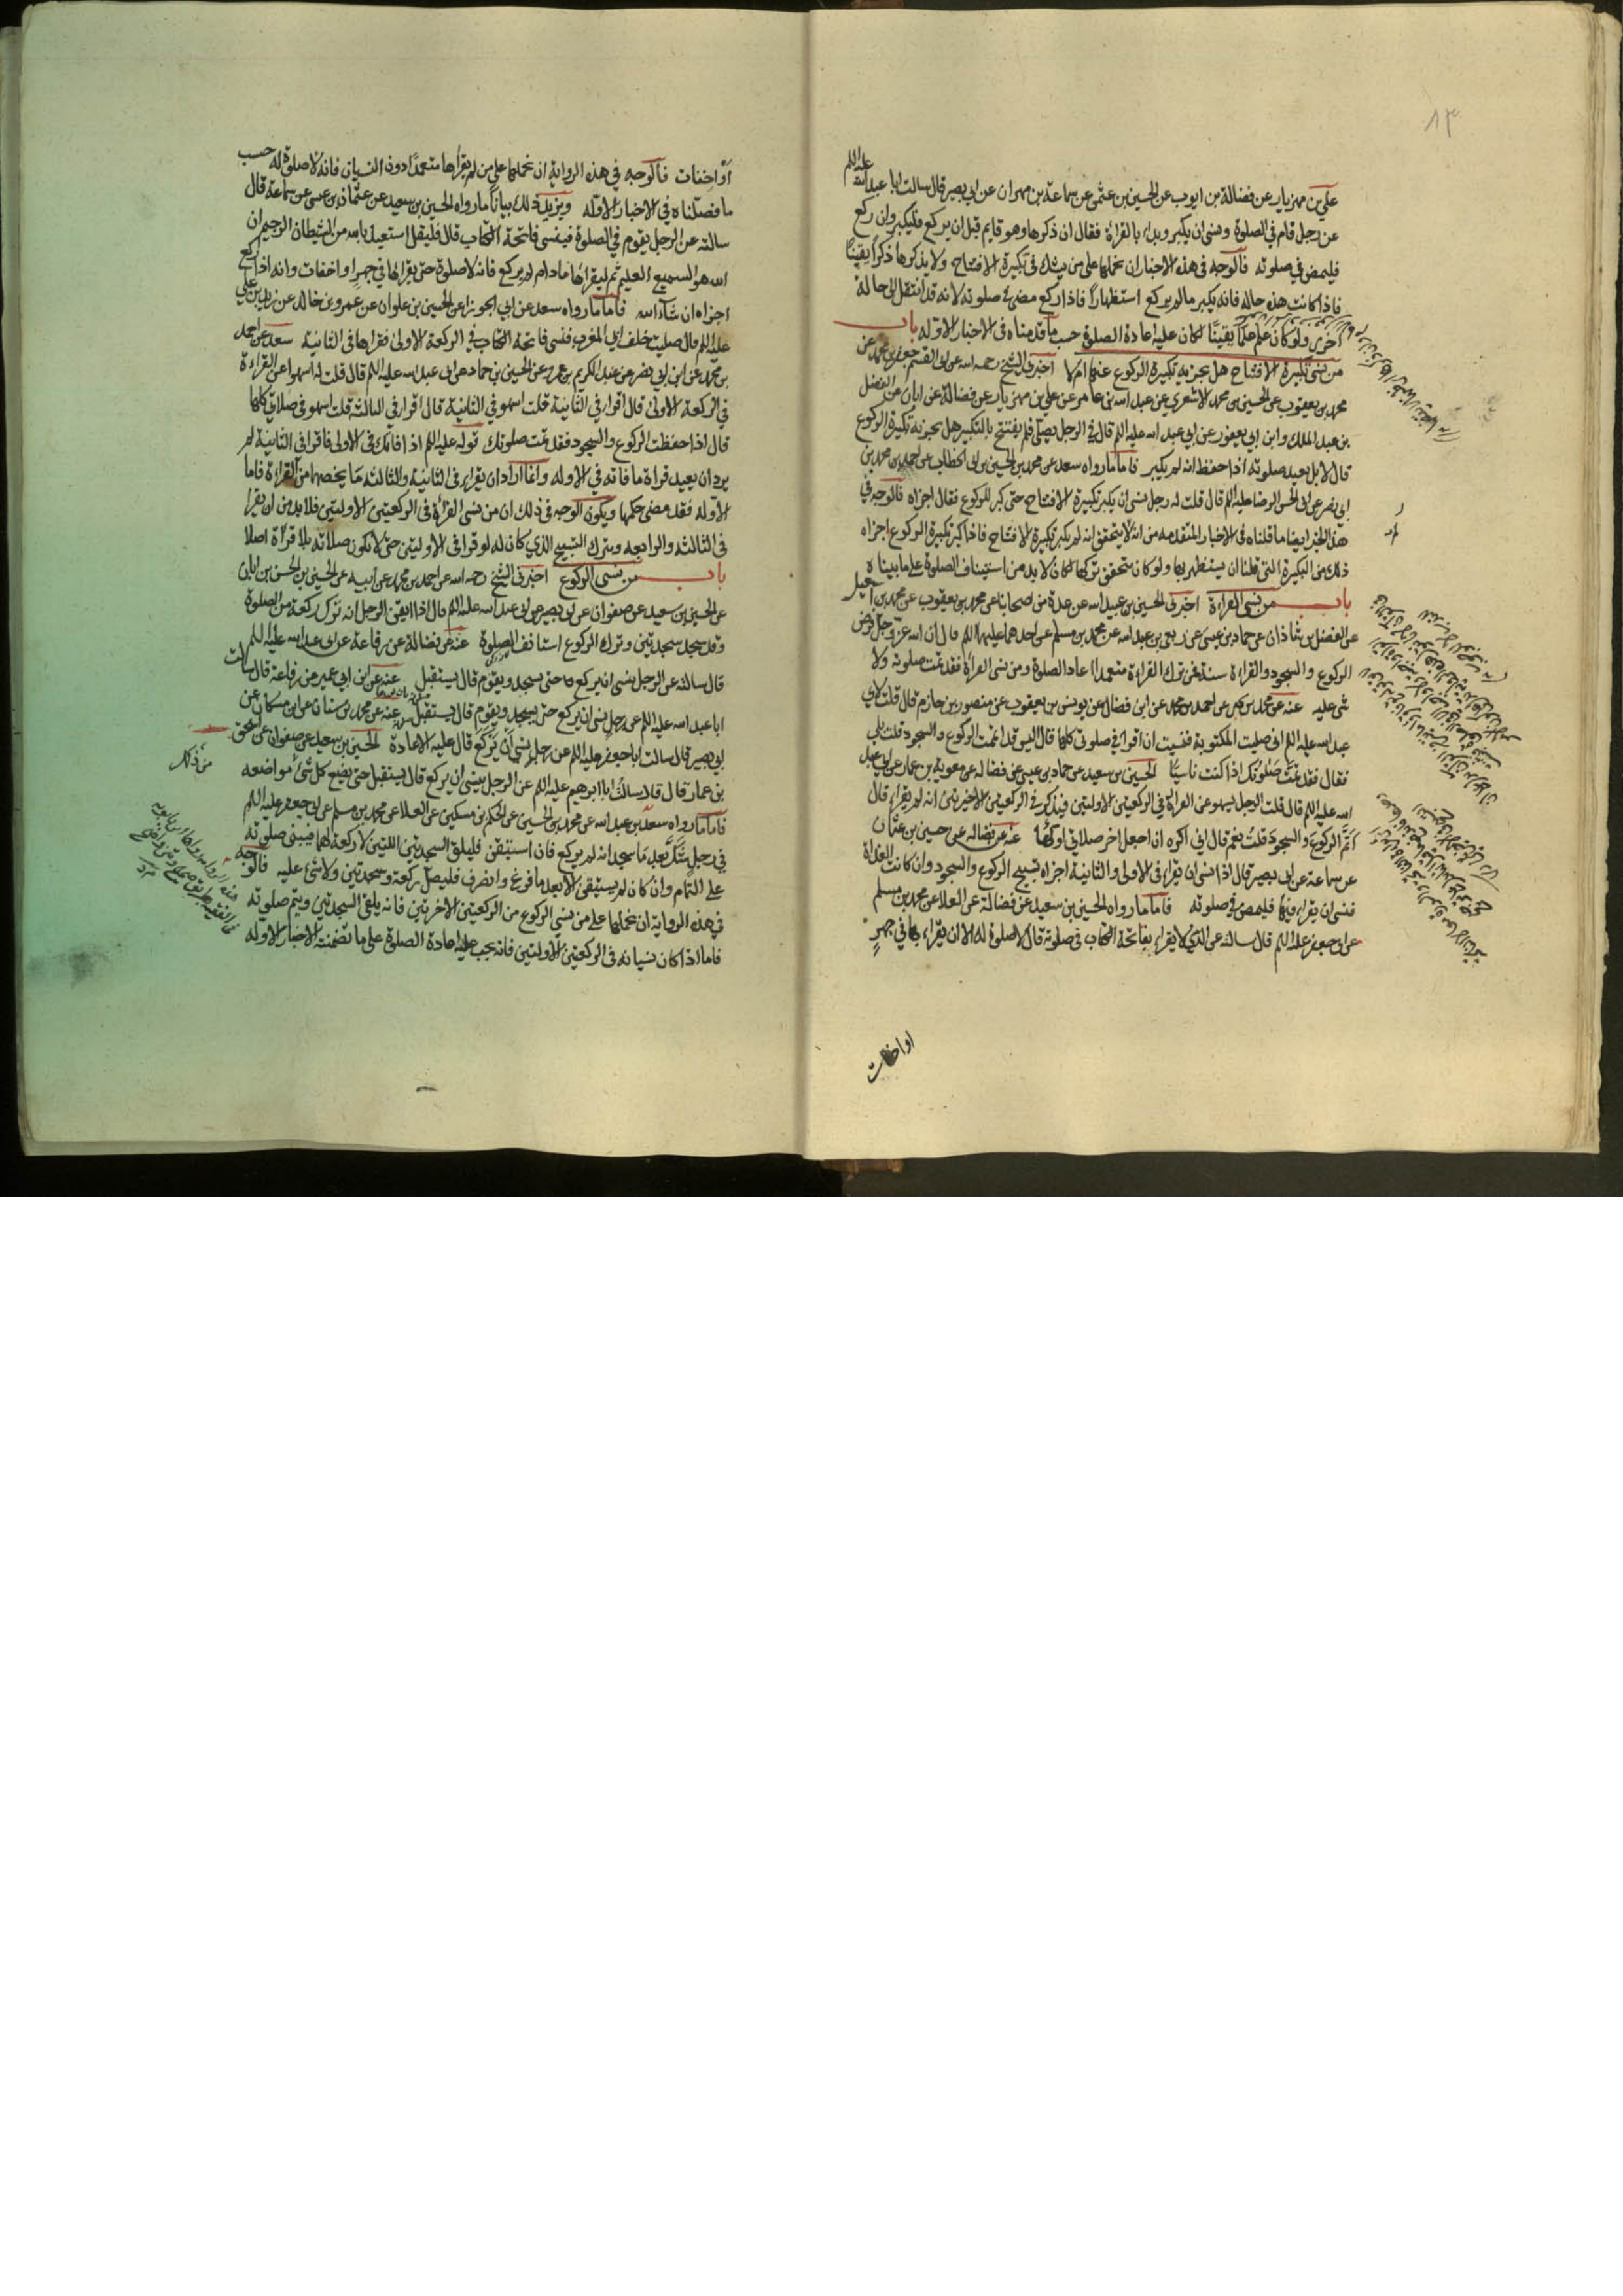 ٨٣
علي بن مهزيار عن فضالة بن ايوب عن الحسين بن عثمن عن سماعة بن مهران عن ابي بصير قال سالت ابا عبدالله عليه السلم
عن رجل قام في الصلوة ونسى ان يكبر وبداء بالقراءة فقال ان ذكرها وهو قايم قبل ان يركع فليكبر وان ركع
فليمض في صلوته فالوجه في هذه الاخبار ان نحملها على من يشك في تكبيرة الافتتاح ولا يذكرها ذكرا يقينًا
فاذا كانت هذه حاله فانه يكبر مالم يركع استظهاراً فاذا ركع مضى في صلوته لانه قد انتقل الى حالة
اخرى ولو كان علم علمًا يقينًا لكان عليه اعادة الصلوة حسب ما قدمناه في الاخبار الاوله باب
من نسى تكبيرة الافتتاح هل يجزيه تكبيرة الركوع عنها ام لا اخبرني الشيخ رحمه الله عن ابي القسم جعفر بن محمد عن
محمد بن يعقوب عن الحسين بن محمد الاشعري عن عبد الله بن عامر عن علي بن مهزيار عن فضالة عن ابان عن الفضل
بن عبد الملك وابن ابي يعفور عن ابي عبد الله عليه السلم قال في الرجل يصلي فلم يفتتح بالتكبير هل يجزيه تكبيرة الركوع
قال لا بل يعيد صلوته اذا حفظ انه لم يكبر فاما ما رواه سعد عن محمد بن الحسين بن ابي الخطاب عن احمد بن محمد بن
ابي نصر عن ابي الحسن الرضا عليه السلم قال قلت له رجل نسى ان يكبر تكبيرة الافتتاح حتى كبر للركوع فقال اجزاه فالوجه في
هذا الخبر ايضا ما قلناه في الاخبار المتقدمه من انه لا يتحقق انه لم يكبر تكبيرة الافتتاح فاذا كبر تكبيرة الركوع اجزاه
ذلك من التكبيرة التي قلنا ان يستظهر بها ولو كان يتحقق تركها لكان لا بد من استيناف الصلوة على ما بيناه
باب من نسى القراءة اخبرني الحسين بن عبيد الله عن عدة من اصحابنا عن محمد بن يعقوب عن محمد بن اسمعيل
عن الفضل بن شاذان عن حماد بن عيسى عن ربعي بن عبد الله عن محمد بن مسلم عن احدهما عليهما السلم قال ان الله عز وجل فرض
الركوع والسجود والقراءة سنة فمن ترك القراءة متعمدا اعاد الصلوة ومن نسى القراءة فقد تمت صلوته ولا
شي عليه عنه عن محمد بن يحيى عن احمد بن محمد عن ابن فضال عن يونس بن يعقوب عن منصور بن حازم قال قلت لابي
عبد الله عليه السلم اني صليت المكتوبة فنسيت ان اقرا في صلوتي كلها قال اليس قد اتممت الركوع والسجود قلت بلى
فقال فقد تمت صلوتك اذا كنت ناسيًا الحسين بن سعيد عن حماد بن عيسى عن فضاله عن معوية بن عمار عن ابي عبد
الله عليه السلم قال قلت الرجل يسهو عن القراءة في الركعتين الاوليتين فيذكر في الركعتين الاخيرتين انه لم يقراء قال
اتم الركوع والسجود قلت نعم قال اني اكره ان اجعل اخر صلاتي اولها عنه عن فضاله عن حسين بن عثمان
عن سماعة عن ابي بصير قال اذا نسى ان يقراء في الاولى والثانية اجزاه تسبيح الركوع والسجود وان كانت الغداة
فنسى ان يقراء فيها فليمض في صلوته فاما ما رواه الحسين بن سعيد عن فضالة عن العلا عن محمد بن مسلم
عن ابي جعفر عليه السلم قال سالته عن الذي لا يقراء بفاتحة الكتاب في صلوته قال لا صلوة له الا ان يقراء بها في جهرٍ
او اخفات
او اخفات فالوجه في هذه الرواية ان نحملها على من لم يقراها متعمداً دون النسيان فانه لا صلوة له حسب
ما فصلناه في الاخبار الاوله ويزيد ذلك بيانا ما رواه الحسين بن سعيد عن عثمان بن عيسى عن سماعة قال
سالته عن الرجل يقوم في الصلوة فينسى فاتحة الكتاب قال فليقل استعيذ بالله من الشيطان الرجيم ان
الله هو السميع العليم ثم ليقراها ما دام لم يركع فانه لا صلوة حتى يقرا بها في جهر او اخفات وانه اذا ركع
اجزاه ان شاء الله فاما ما رواه سعد عن ابي الجوزا عن الحسين بن علوان عن عمرو بن خالد عن زيد بن علي
عليه السلم قال صليت خلف ابي المغرب فنسى فاتحة الكتاب في الركعة الاولى فقراها في الثانية سعد عن احمد
بن محمد عن ابن ابي نصر عن عبد الكريم بن عمرو عن الحسين بن حماد عن ابي عبد الله عليه السلم قال قلت له اسهوا عن القراءة
في الركعة الاولى قال اقرا في الثانية قلت اسهو في الثانية قال اقرا في الثالثة قلت اسهو في صلاتي كلها
قال اذا حفظت الركوع والسجود فقد تمت صلوتك قوله عليه السلم اذا فاتك في الاولى فاقرا في الثانية لم
يرد ان يعيد قراة ما فاته في الاوله وانما اراد ان يقراء في الثانية والثالثه ما يخصهما من القراءة فاما
الاوله فقد مضى حكمها ويكون الوجه في ذلك ان من نسى القراءة في الركعتين الاوليتين فلا بد من ان يقرا
في الثالثه والرابعه ويترك التسبيح الذي كان له لو قرا في الاوليتين حتى لا تكون صلاته بلا قراة اصلا
باب من نسى الركوع اخبرني الشيخ رحمه الله عن احمد بن محمد عن ابيه عن الحسين بن الحسن بن ابان
عن الحسين بن سعيد عن صفوان عن ابي بصير عن ابي عبد الله عليه السلم قال اذا ايقن الرجل انه ترك ركعة من الصلوة
وقد سجد سجدتين وترك الركوع استانف الصلوة عنه عن فضالة عن رفاعة عن ابي عبد الله عليه السلم
قال سالته عن الرجل نسى ان يركع حتى يسجد ويقوم قال يستقبل عنه عن ابن ابي عمير عن رفاعة قال سالت
ابا عبد الله عليه السلم عن رجل نسى ان يركع حتى يسجد ويقوم قال يستقبل عنه عن محمد بن سنان عن ابن مسكان عن
ابي بصير قال سالت ابا جعفر عليه السلم عن رجل نسى ان يركع قال عليه الاعادة الحسين بن سعيد عن صفوان عن اسحق
بن عمار قال قال سالت ابا ابرهيم عليه السلم عن الرجل ينسى ان يركع قال يستقبل حتى يضع كل شئ مواضعه
فاما ما رواه سعد بن عبد الله عن محمد بن الحسين عن الحكم بن مسكين عن العلا عن محمد بن مسلم عن ابي جعفر عليه السلم
في رجل شك بعد ما سجد انه لم يركع فان استيقن فليلق السجدتين اللتين لا ركعة لهما فيبني صلوته
على التمام وان كان لم يستيقن الا بعد ما فرغ وانصرف فليصل ركعة وسجدتين ولا شئ عليه فالوجه
في هذه الرواية ان نحملها على من نسى الركوع من الركعتين الاخرتين فانه يلقى السجدتين ويتم صلوته
فاما اذا كان نسيانه في الركعتين الاوليتين فانه يجب عليه اعادة الصلوة على ما تضمنته الاخبار الاوله